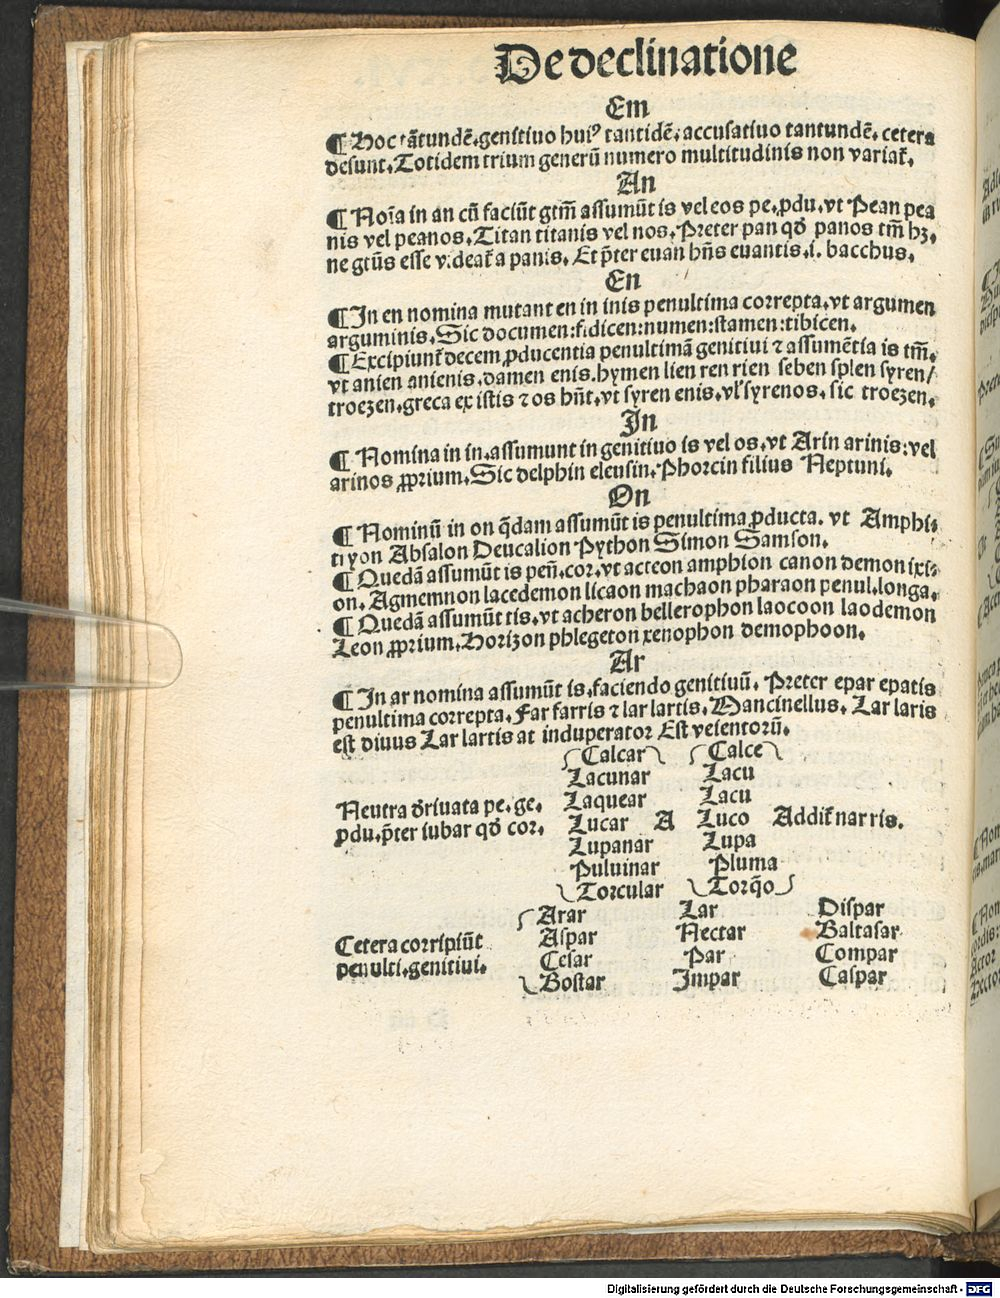 De declinatione
Em
¶ Hoc tātundē. genitiuo huiꝰ tantidē: accusatiuo tantundē. cetera
desunt. Totidem trium generū numero multitudinis non variat̄.
An
¶ Noīa in an cū faciūt gtm̄ assumūt is vel eos pe. ꝓdu. vt Pean pea
nis vel peanos. Titan titanis vel nos. Preter pan qđ panos tm̄ hꝫ.
ne gtūs esse videat̄ a panis. Et p̄ter euan hn̄s euantis. i. bacchus.
En
¶ In en nomina mutant en in inis penultima correpta. vt argumen
arguminis. Sic documen: fidicen: numen: stamen: tibicen.
¶ Excipiunt̄ decem ꝓducentia penultimā genitiui ⁊ assumētia is tm̄.
vt anien anienis. damen enis. hymen lien ren rien seben splen syren/
troezen. greca ex istis ⁊ os hn̄t. vt syren enis. vl̕ syrenos. sic troezen.
In
¶ Nomina in in. assumunt in genitiuo is vel os. vt Arin arinis: vel
arinos ꝓprium. Sic delphin eleusin. Phorcin filius Neptuni.
On
¶ Nominū in on q̄dam assumūt is penultima ꝓducta. vt Amphi:
tryon Absalon Deucalion Python Simon Samson.
¶ Quedā assumūt is peñ. cor. vt acteon amphion canon demon ixi:
on. Agmemnon lacedemon licaon machaon pharaon penul. longa.
¶ Quedā assumūt tis. vt acheron bellerophon laocoon laodemon
Leon ꝓprium. Horizon phlegeton xenophon demophoon.
Ar
¶ In ar nomina assumūt is. faciendo genitiuū. Preter epar epatis
penultima correpta. Far farris ⁊ lar lartis. Mancinellus. Lar laris
est diuus Lar lartis at induperator Est veientorū.
Calcar Calce
Lacunar Lacu
Neutra đriuata pe. ge. Laquear Lacu
ꝓdu. p̄ter iubar qđ cor. Lucar A Luco Addit̄ nar ris.
Lupanar Lupa
Puluinar Pluma
Torcular Torq̄o
Arar Lar Dispar
Cetera corripiūt Aspar Nectar Baltasar
penulti. genitiui. Cesar Par Compar
Bostar Impar Caspar
Digitalisierung gefördert durch die Deutsche Forschungsgemeinschaft - DFG